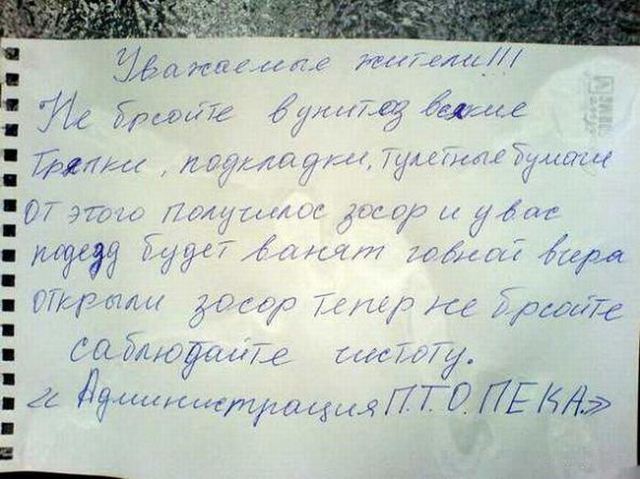 Уважаемые жители!!!
Не брсойте в унитоз всякие
Трялки, подкладки, тулетные бумаги
от этого получилос зосор и у вас
подезд будет ванят говной вчера
открыли зосор тепер не брсойте
саблюдайте чистоту.
«Администрация П.Т.О. ПЕКА.»